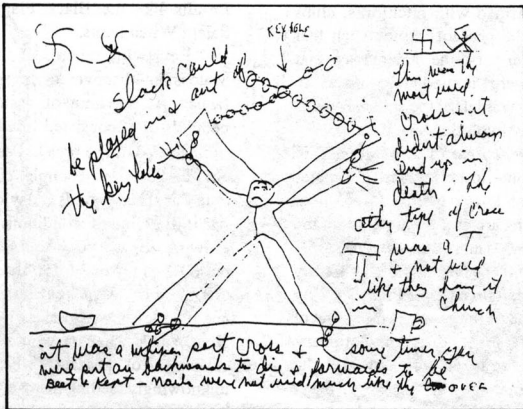 KEY HOLE
Slack could
be played in & out of
the key holes
This was the
most used
cross & it
didn't always
end up in
death. The
other type of cross
was a T
& not used
like they have it
in Church
it was a post cross & some times you
were put on backwards to die & forwards to be
Beat & Kept – nails were not used much like the